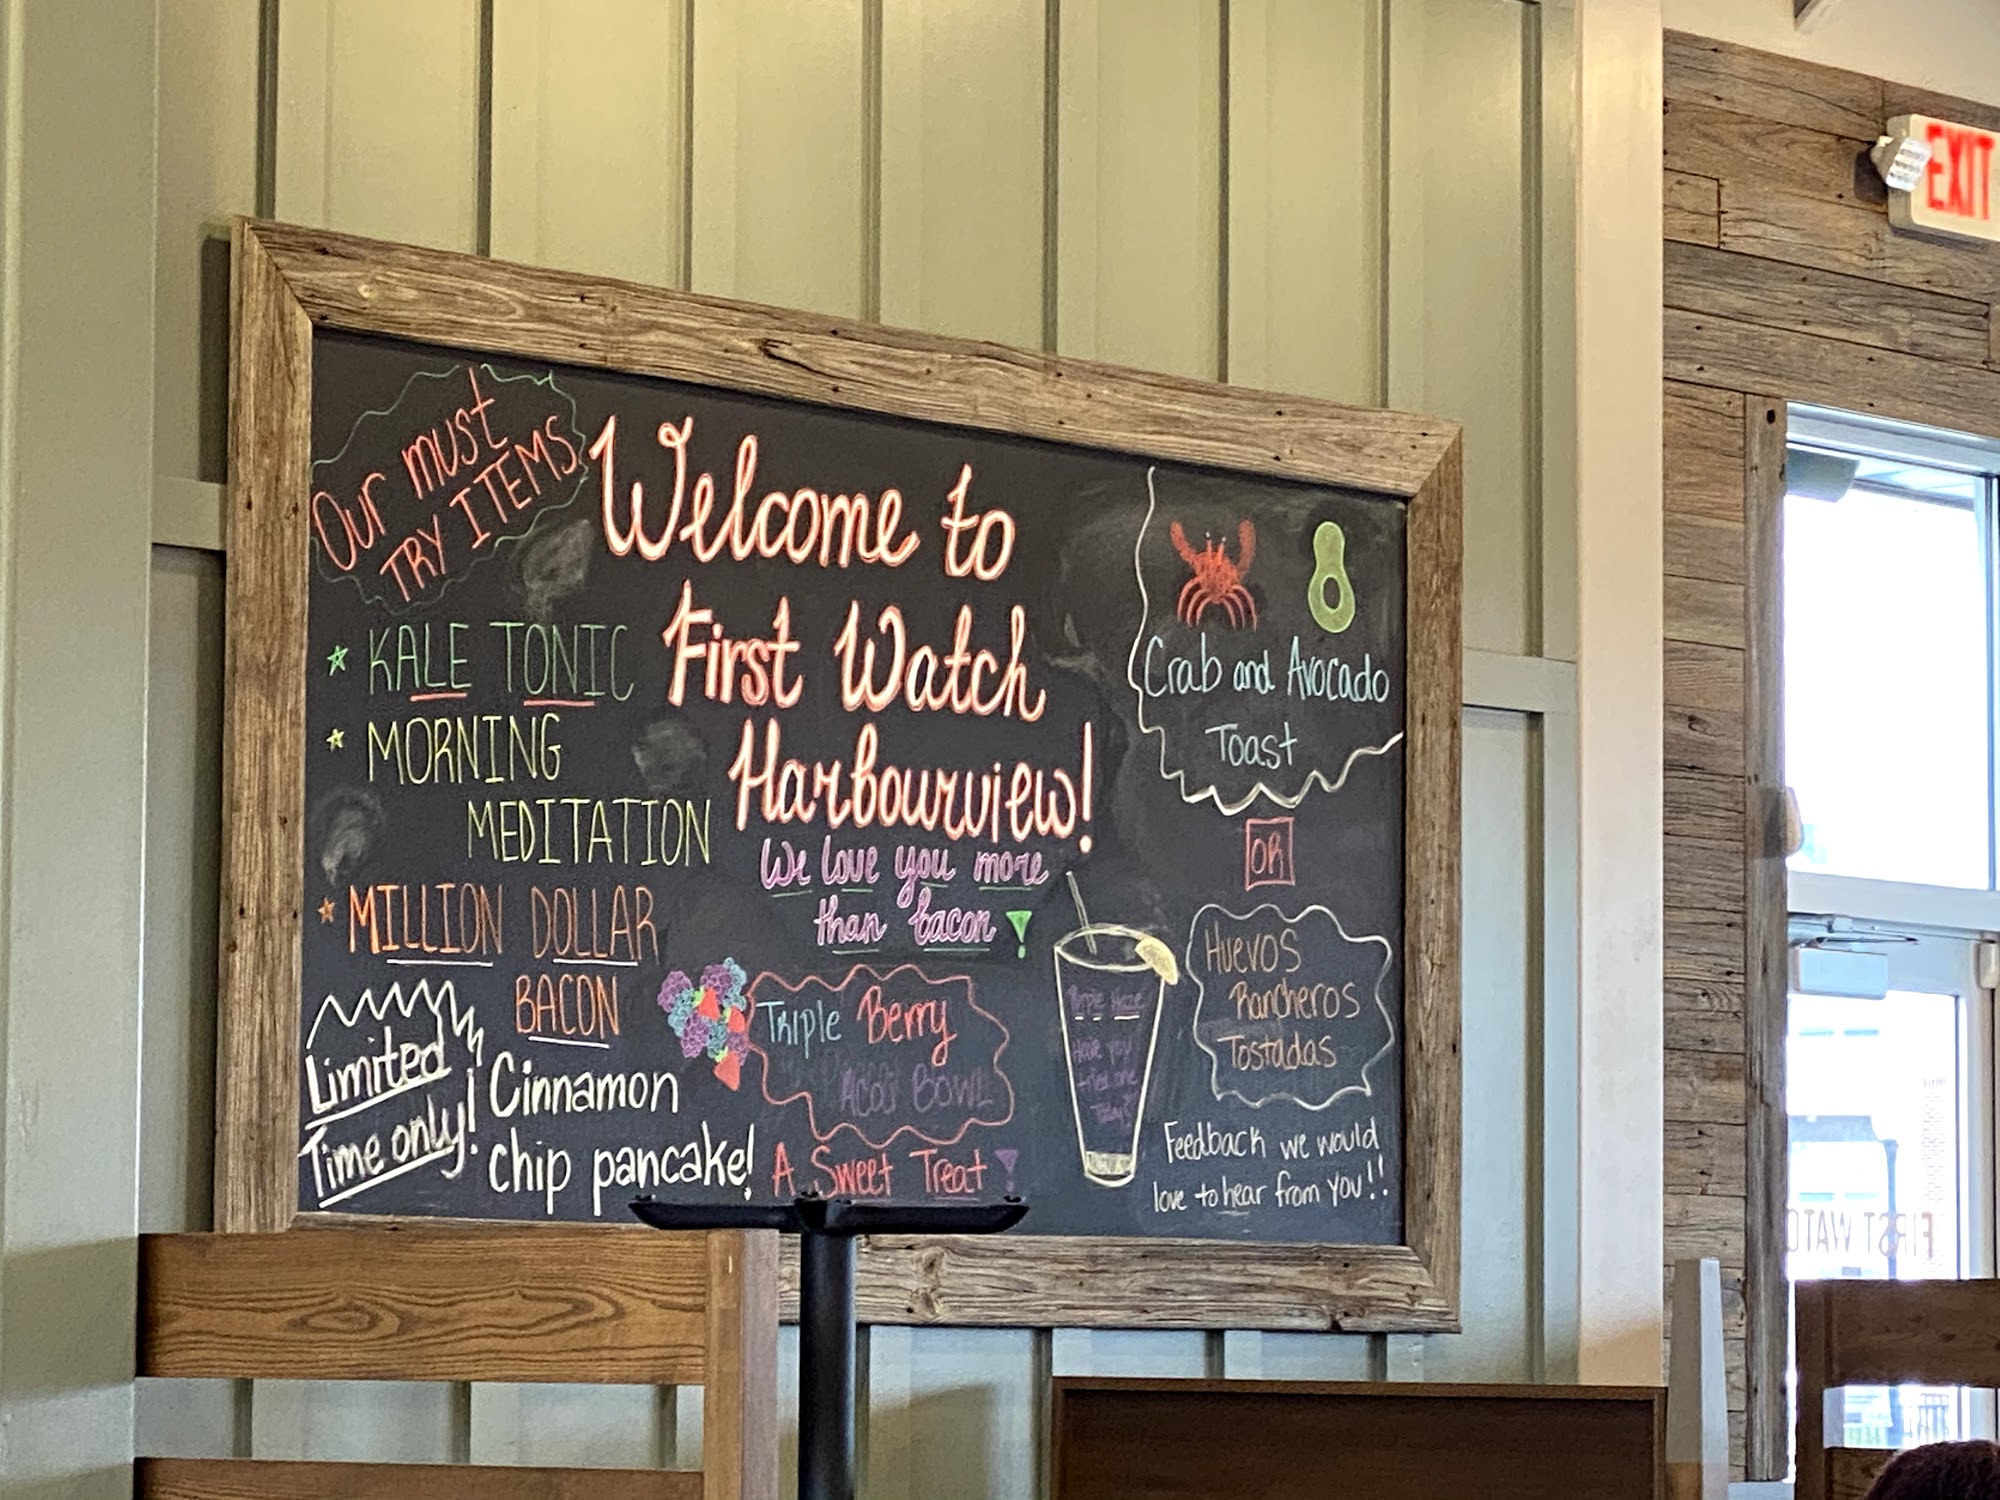 Our must
TRY ITEMS
KALE TONIC
MORNING
MEDITATION
MILLION DOLLAR
BACON
Limited
Time only!
Cinnamon
chip pancake!
Welcome to
First Watch
Harbourview!
We love you more
than bacon!
Triple Berry
Acai Bowl
A Sweet Treat!
Purple Haze
Have you
tried one
Today?
Crab and Avocado
Toast
OR
Huevos
Rancheros
Tostadas
Feedback we would
love to hear from you!!
EXIT
FIRST WATC